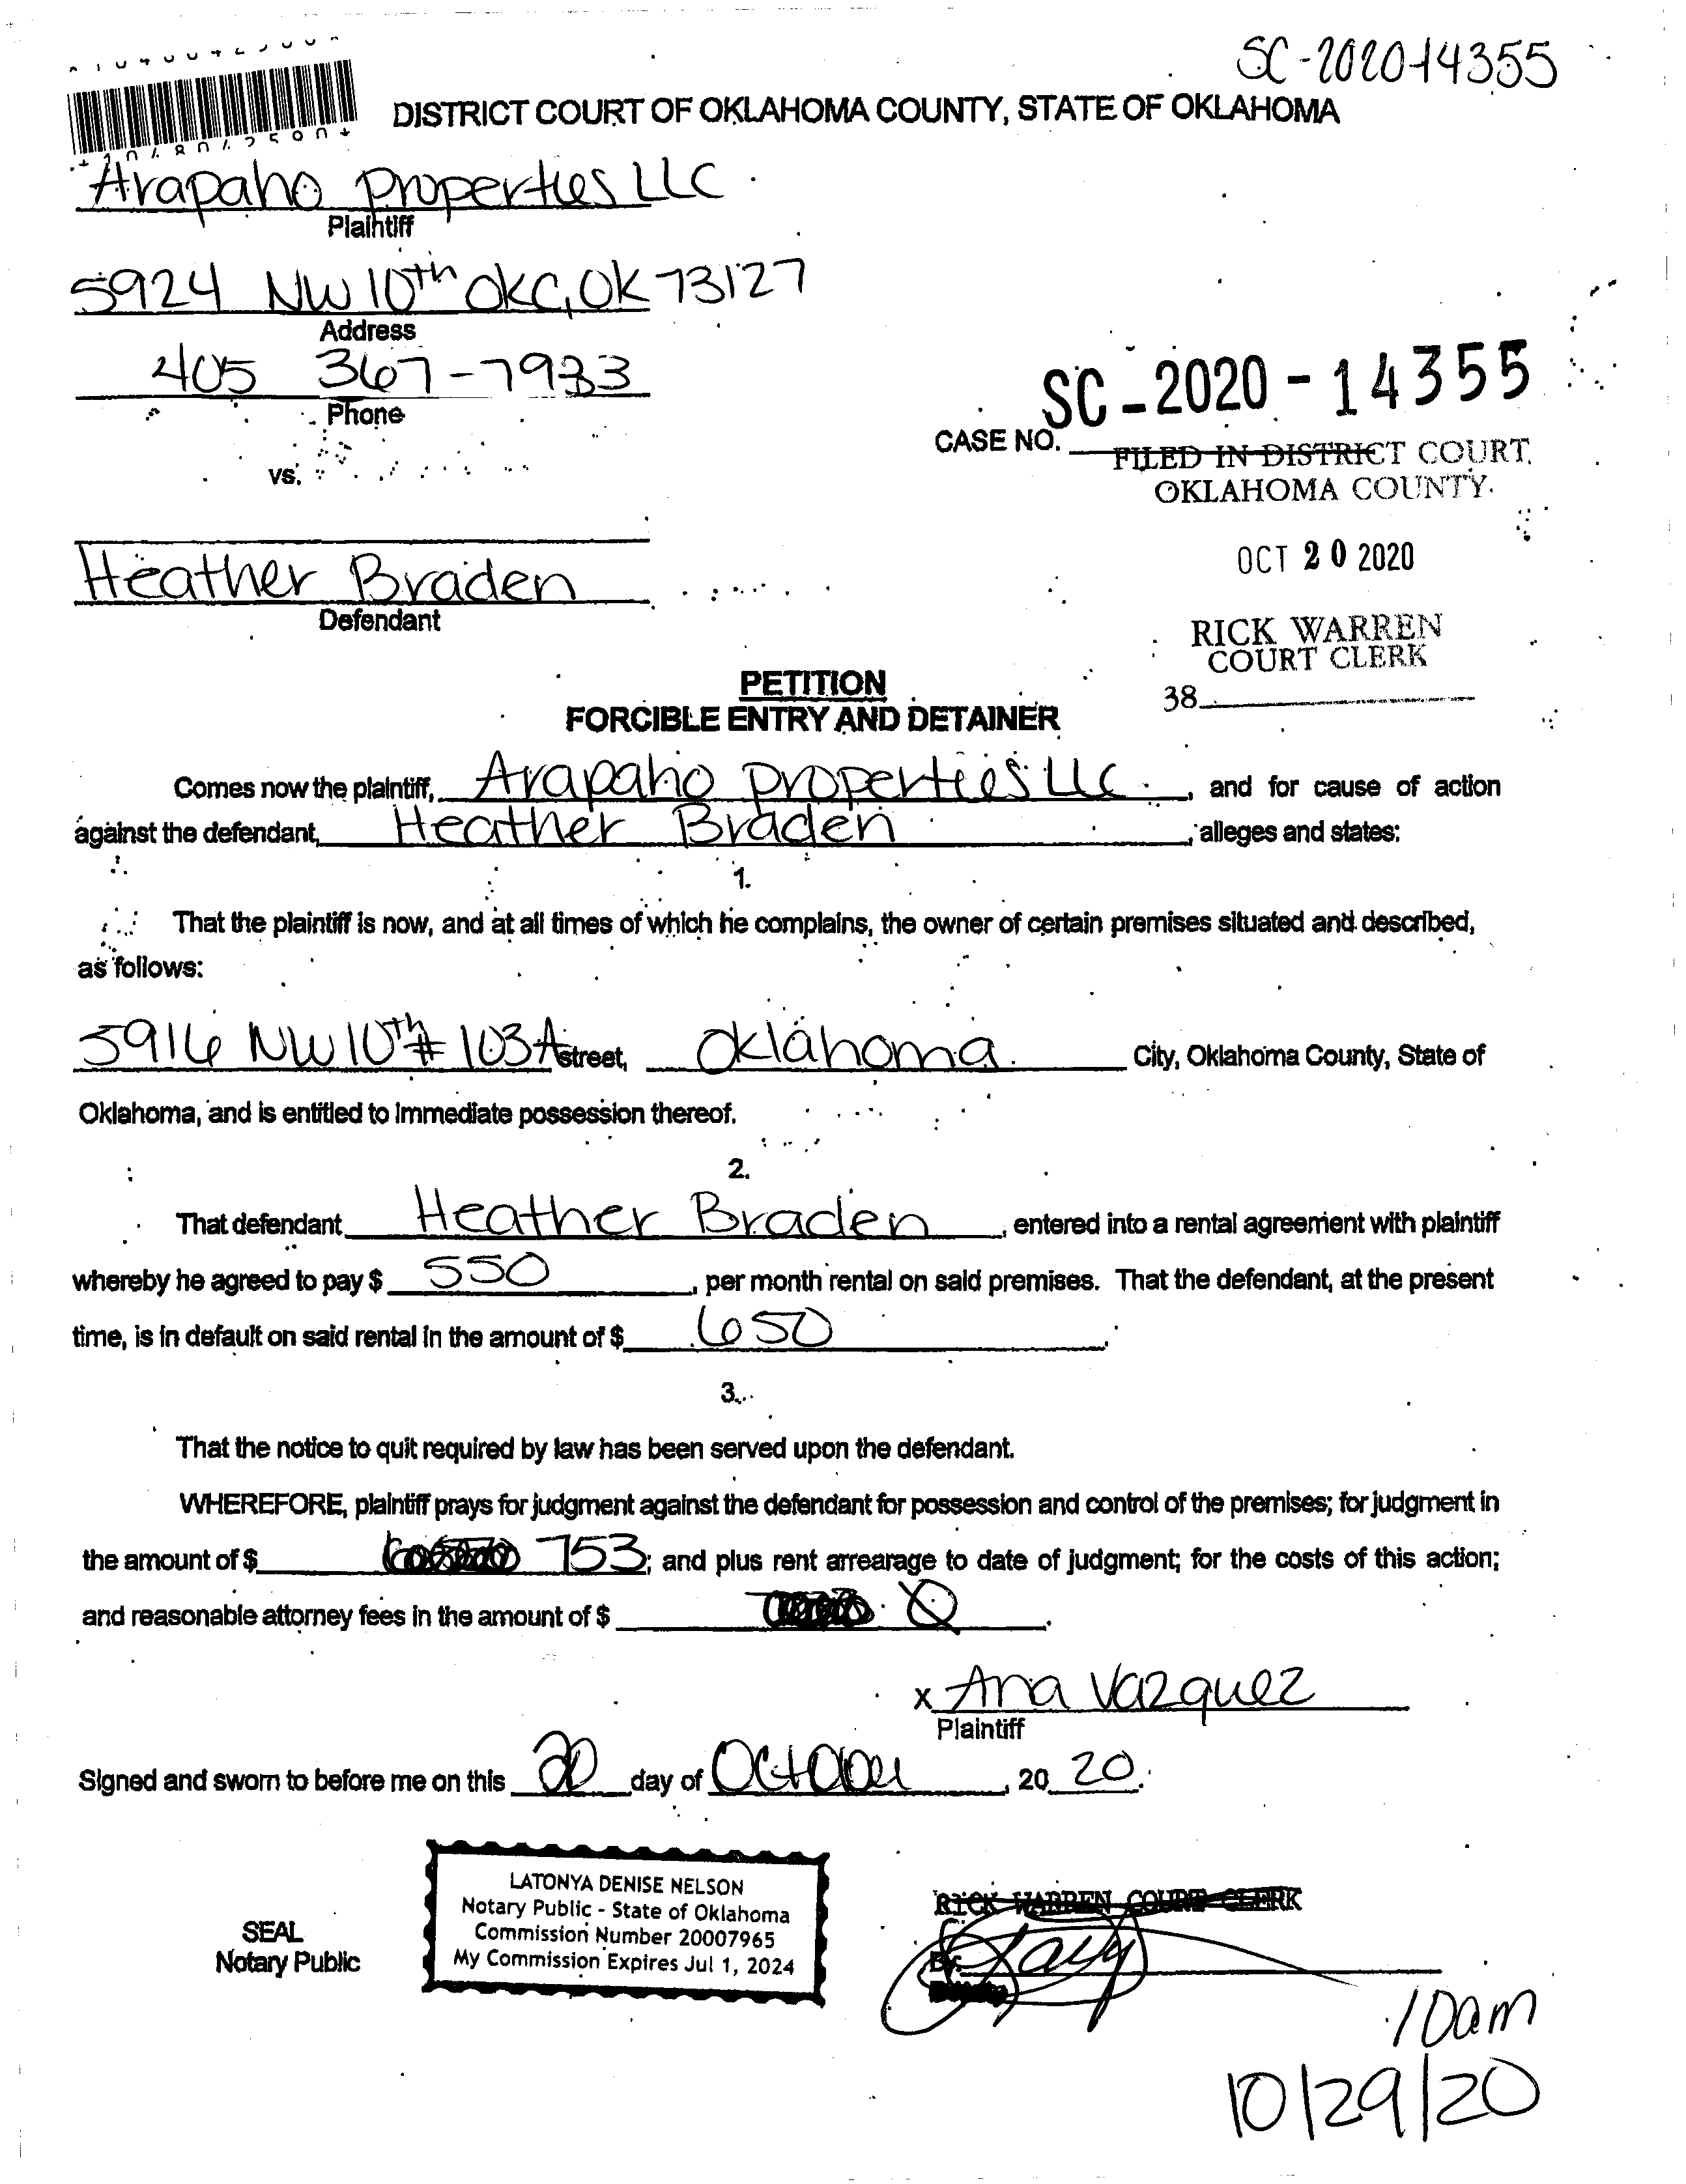 SC-2020-14355
DISTRICT COURT OF OKLAHOMA COUNTY, STATE OF OKLAHOMA
Arapaho Properties LLC
Plaintiff
5924 NW 10th OKC, OK 73127
Address
405 367-7933
Phone
SC-2020-14355
CASE NO.
FILED IN DISTRICT COURT
OKLAHOMA COUNTY
vs.
OCT 20 2020
Heather Braden
Defendant
RICK WARREN
COURT CLERK
38
PETITION
FORCIBLE ENTRY AND DETAINER
Comes now the plaintiff, Arapaho Properties LLC, and for cause of action
against the defendant, Heather Braden, alleges and states:
1.
That the plaintiff is now, and at all times of which he complains, the owner of certain premises situated and described,
as follows:
5916 NW 10th # 103A street, Oklahoma City, Oklahoma County, State of
Oklahoma, and is entitled to immediate possession thereof.
2.
That defendant Heather Braden, entered into a rental agreement with plaintiff
whereby he agreed to pay $ 550, per month rental on said premises. That the defendant, at the present
time, is in default on said rental in the amount of $ 650.
3.
That the notice to quit required by law has been served upon the defendant.
WHEREFORE, plaintiff prays for judgment against the defendant for possession and control of the premises; for judgment in
the amount of $ 753; and plus rent arrearage to date of judgment; for the costs of this action;
and reasonable attorney fees in the amount of $ 0.
x Ana Vazquez
Plaintiff
Signed and sworn to before me on this 20 day of October, 20 20.
LATONYA DENISE NELSON
Notary Public - State of Oklahoma
Commission Number 20007965
My Commission Expires Jul 1, 2024
SEAL
Notary Public
RICK WARREN COURT CLERK
By
10am
10/29/20